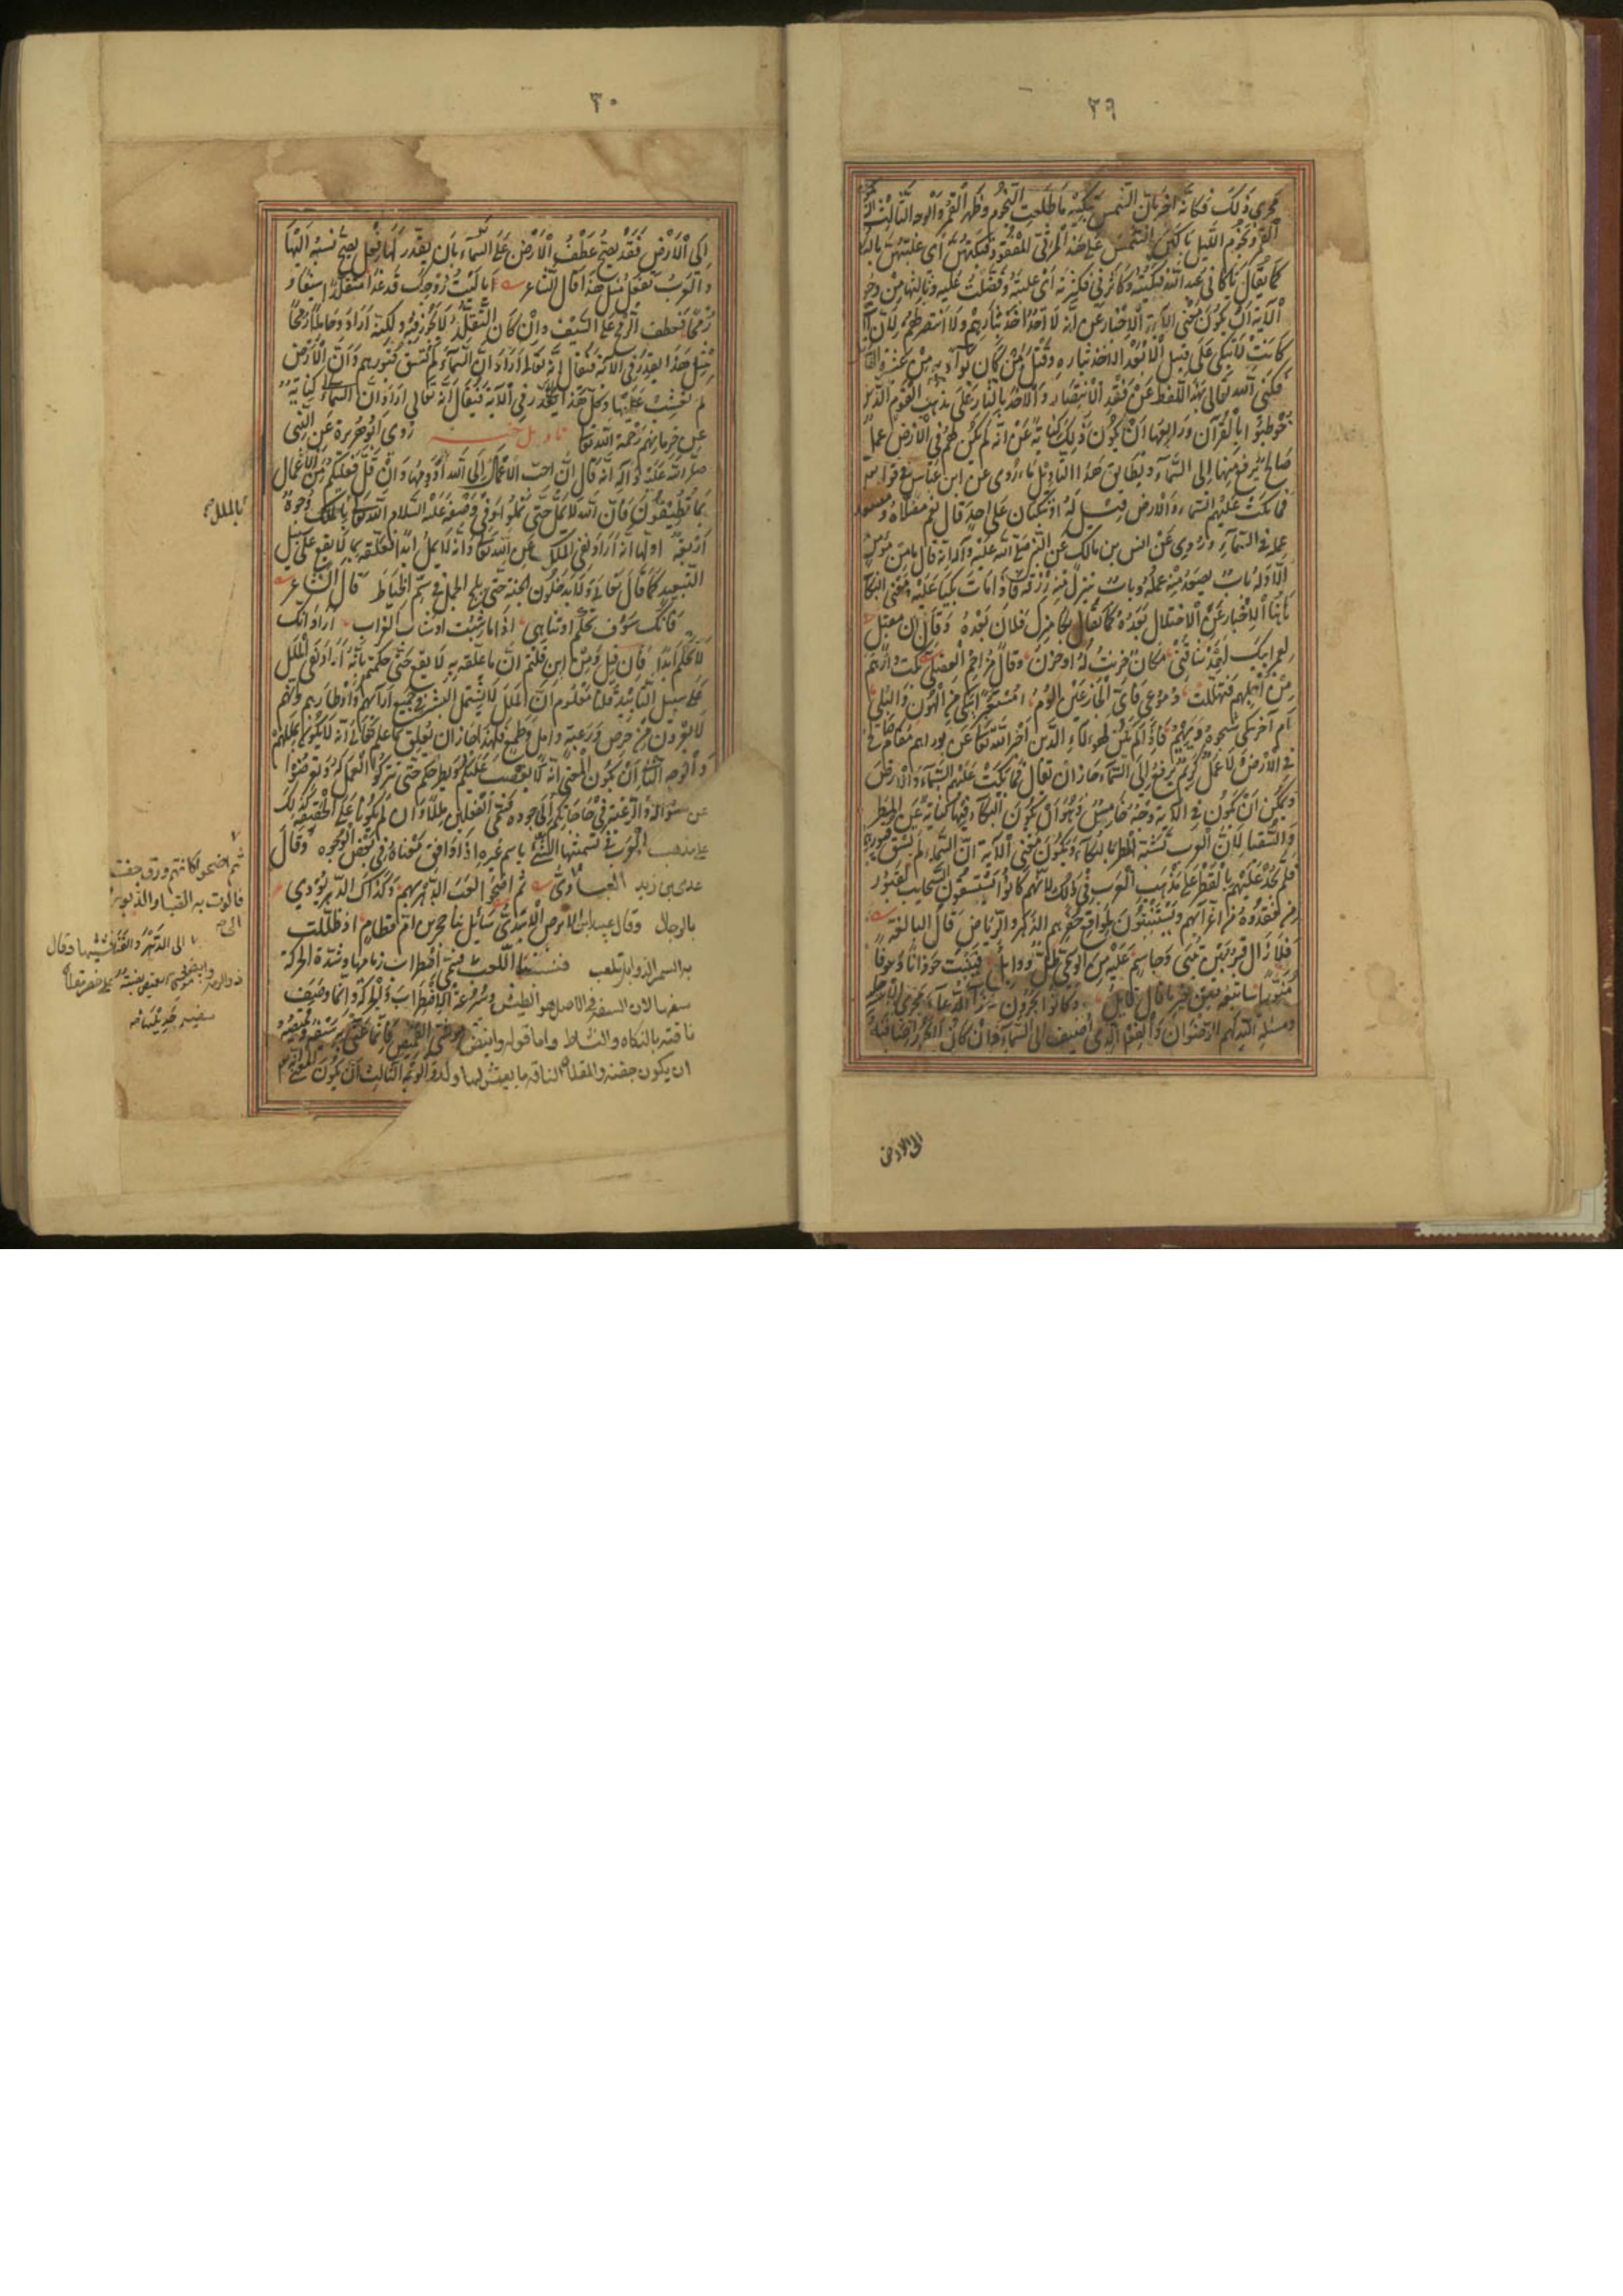 ٢٩
مجرى ذلك فكأنه أخبر بأن الشمس تبكيه ما طلعت النجوم وظهر القمر والوجه الثالث
القمر ونجوم الليل باكين الشمس على هذا المرثي المفقود فبكتهن أي غلبتهن بالبكاء
كما يقال باكاني عبد الله فبكيته وكاثرني فكثرته أي غلبته وفضلت عليه وثالثها من وجوه
الآية أن يكون معنى الآية الاخبار عن أنه لا أحد أخذ بثارهم ولا انتصر لهم لأن العرب
كانت لا تبكي على قتيل الا بعد الأخذ بثاره وقتل من كان بواء به من عشيرة القاتل
فكنى الله تعالى بهذا اللفظ عن فقد الانتصار والأخذ بالثار على مذهب القوم الذين
خوطبوا بالقرآن ورابعها أن يكون ذلك كناية عن أنه لم يكن لهم في الأرض عمل
صالح يرفع منها إلى السماء ويطابق هذا التأويل ما روي عن ابن عباس في قوله
فما بكت عليهم السماء والأرض قيل له أو تبكيان على أحد قال نعم مصلاه ومصعد
عمله في السماء وروي عن أنس بن مالك عن النبي صلى الله عليه وآله أنه قال ما من مؤمن
الا وله باب يصعد منه عمله وباب ينزل منه رزقه فاذا مات بكيا عليه ومعنى البكاء
هاهنا الاخبار عن الاختلال بعده كما يقال بكى منزل فلان بعده وقال ابن مقبل
لعمر أبيك لقد شاقني مكان حزنت له أو حزن وقال مزاحم العقيلي بكت دارهم
من أجلهم فتهللت دموعي فأي الجازعين ألوم أمستعبرا يبكي من الهون والبلى
أم آخر يبكي شجوه ويهيم فاذا لم يكن لهؤلاء الذين أخبر الله تعالى عن بوارهم مقام صالح في
في الأرض ولا عمل كريم يرفع إلى السماء جاز أن يقال فما بكت عليهم السماء والأرض
ويمكن أن يكون في الآية وجه خامس وهو أن يكون البكاء فيها كناية عن المطر
والسقيا لأن العرب تشبه المطر بالبكاء ويكون معنى الآية أن السماء لم تسق قبورهم
فلم تجد عليهم بالقطر على مذهب العرب في ذلك لأنهم كانوا يستسقون السحايب لقبور
من فقدوه من أعزائهم ويستنبتون لمواقع حفرهم الزهر والرياض قال النابغة
فلا زال قبر بين تبنى وجاسم عليه من الوسمي طل ووابل فينبت حوذانا وعوفا
منورا سأتبعه من خير ما قال قايل وكانوا يجرون هذا الدعاء مجرى الاسترحام
ومسئلة الله لهم الرضوان والفعل الذي أضيف إلى السماء وان كان لا يجوز اضافته
الى الارض
٣٠
إلى الأرض فقد يصح عطف الأرض على السماء بأن يقدر لها فعل يصح نسبه اليها
والعرب تفعل مثل هذا قال الشاعر يا ليت زوجك قد غدا متقلدا سيفا و
رمحا فعطف الرمح على السيف وان كان التقلد لا يجوز فيه ولكنه أراد وحاملا رمحا
ومثل هذا يقدر في الآية فيقال إنه تعالى أراد أن السماء لم تسق قبورهم وأن الأرض
لم تعشب عليها وكل هذا يقدر في الآية فيقال أنه تعالى أراد أن السماء كناية
عن حرمانهم رحمة الله تعالى تأويل خبر روى أبو هريرة عن النبي
صلى الله عليه وآله أنه قال ان أحب الأعمال إلى الله أدومها وان قل فعليكم من الأعمال
بما تطيقون فان الله لا يمل حتى تملوا وفي وصفه عليه السلام الله تعالى بالملل وجوه
أربعة أولها أنه أراد نفي الملل عن الله تعالى وأنه لا يمل أبدا فعلقه بما لا يقع على سبيل
التبعيد كما قال تعالى ولا يدخلون الجنة حتى يلج الجمل في سم الخياط قال الشاعر
فانك سوف تحكم أو تناهى اذا ما شبت أو شاب الغراب أراد انك
لا تحكم أبدا فان قيل ومن أين قلتم ان ما علقه به لا يقع حتى حكمتم بأنه أراد نفى الملل
على سبيل التأبيد قلنا معلوم ان الملل لا يشمل البشر في جميع آرائهم وأوطارهم وأنهم
لا يعرون من حرص ورغبة وأمل وطمع فلهذا جاز أن تعلق ما علم تعالى أنه لا يكون بمللهم
والوجه الثاني أن يكون المعنى أنه لا يغضب عليكم ويطرحكم حتى تتركوا العمل له وتعرضوا
عن سؤاله والرغبة في حاجاتكم إلى جوده فسمى الفعلين مللا وان لم يكونا على الحقيقة كذلك
على مذهب العرب في تسميتها الشيء باسم غيره اذا وافق معناه في بعض الوجوه وقال
عدي بن زيد العبادي ثم أضحوا لعب الدهر بهم وكذاك الدهر يودي
بالرجال وقال عبيد ابن الابرص الاسدي سائل بنا حجر بن أم قطام اذ ظلت
به السمر الذوابل تلعب فنسبا اللعب فيعني اضطراب زمامها وشدة الحركة
سفها لان السفه في الاصل هو الطيش وسرعة الاضطراب والحركة وانما وصف
ناقته بالذكاه والنشاط واما قوله وابيض موشي القميص فانما عنى به سيفه وقميصه
ان يكون جفنه والمقلات الناقة ما يعيش لها ولد والوجه الثالث أن يكون المعنى
بالملل
ثم اضحوا كانهم ورق جف
فالوت به الصبا والدبور
الى الدهر والقنا تشبيها وقال
ذو الرمة وابيض موشي القميص نصبته على خصر مقلات
سفيه جديلها